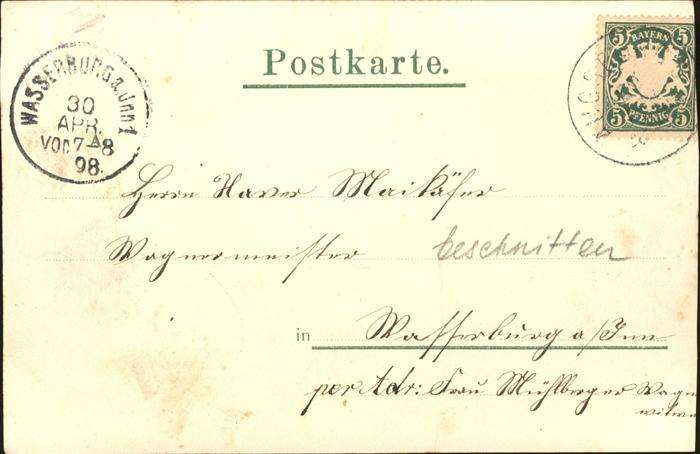 Postkarte.
BAYERN
5 5
5 PFENNIG 5
WASSERBURG a. Inn 1
30
APR.
VOR 7-8
98.
Herrn Xaver Maikäfer
Wagnermeister
beschnitten
in Wasserburg a/Inn
per Adr: Frau Mühlberger Wagner
witwe